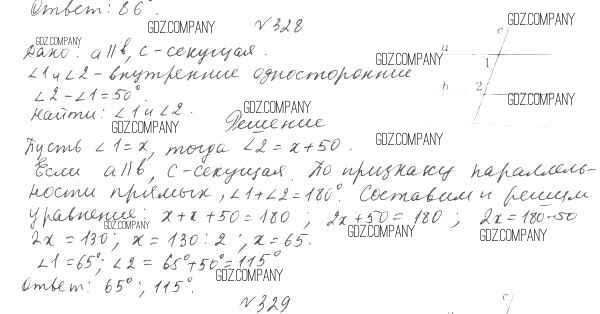 Ответ: 86°.
№328
Дано: a∥b, c-секущая.
∠1 и ∠2 - внутренние односторонние
∠2-∠1=50°.
Найти: ∠1 и ∠2.
Решение
Пусть ∠1=x, тогда ∠2=x+50.
Если a∥b, c-секущая. По признаку параллель-
ности прямых, ∠1+∠2=180°. Составим и решим
уравнение: x+x+50=180; 2x+50=180; 2x=180-50
2x=130; x=130:2; x=65.
∠1=65°; ∠2=65°+50°=115°
Ответ: 65°; 115°.
№329
c
a
1
2
b
c
GDZ.COMPANY
GDZ.COMPANY
GDZ.COMPANY
GDZ.COMPANY
GDZ.COMPANY
GDZ.COMPANY
GDZ.COMPANY
GDZ.COMPANY
GDZ.COMPANY
GDZ.COMPANY
GDZ.COMPANY
GDZ.COMPANY